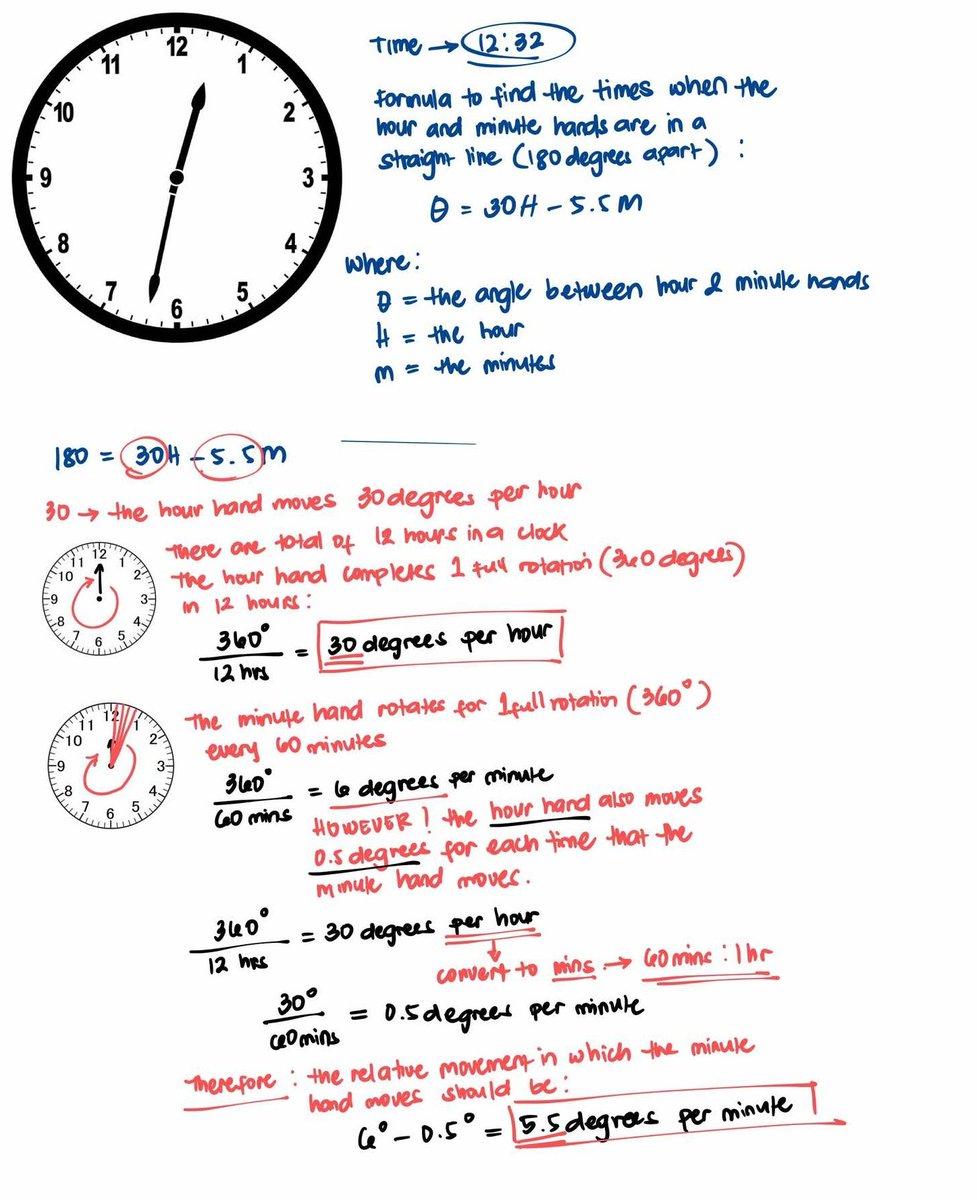 12
11
1
10
2
9
3
8
4
7
5
6
Time → 12:32
Formula to find the times when the
hour and minute hands are in a
straight line (180 degrees apart) :
θ = 30H - 5.5M
where:
θ = the angle between hour & minute hands
H = the hour
m = the minutes
180 = 30H - 5.5M
30 → the hour hand moves 30 degrees per hour
There are total of 12 hours in a clock
The hour hand completes 1 full rotation (360 degrees)
in 12 hours:
12
11
1
10
2
9
3
8
4
7
5
6
360°
12 hrs
= 30 degrees per hour
The minute hand rotates for 1 full rotation (360°)
every 60 minutes
12
11
1
10
2
9
3
8
4
7
5
6
360°
60 mins
= 6 degrees per minute
HOWEVER! the hour hand also moves
0.5 degrees for each time that the
minute hand moves.
360°
12 hrs
= 30 degrees per hour
convert to mins → 60 mins : 1 hr
30°
60 mins
= 0.5 degrees per minute
Therefore : the relative movement in which the minute
hand moves should be:
6° - 0.5° = 5.5 degrees per minute